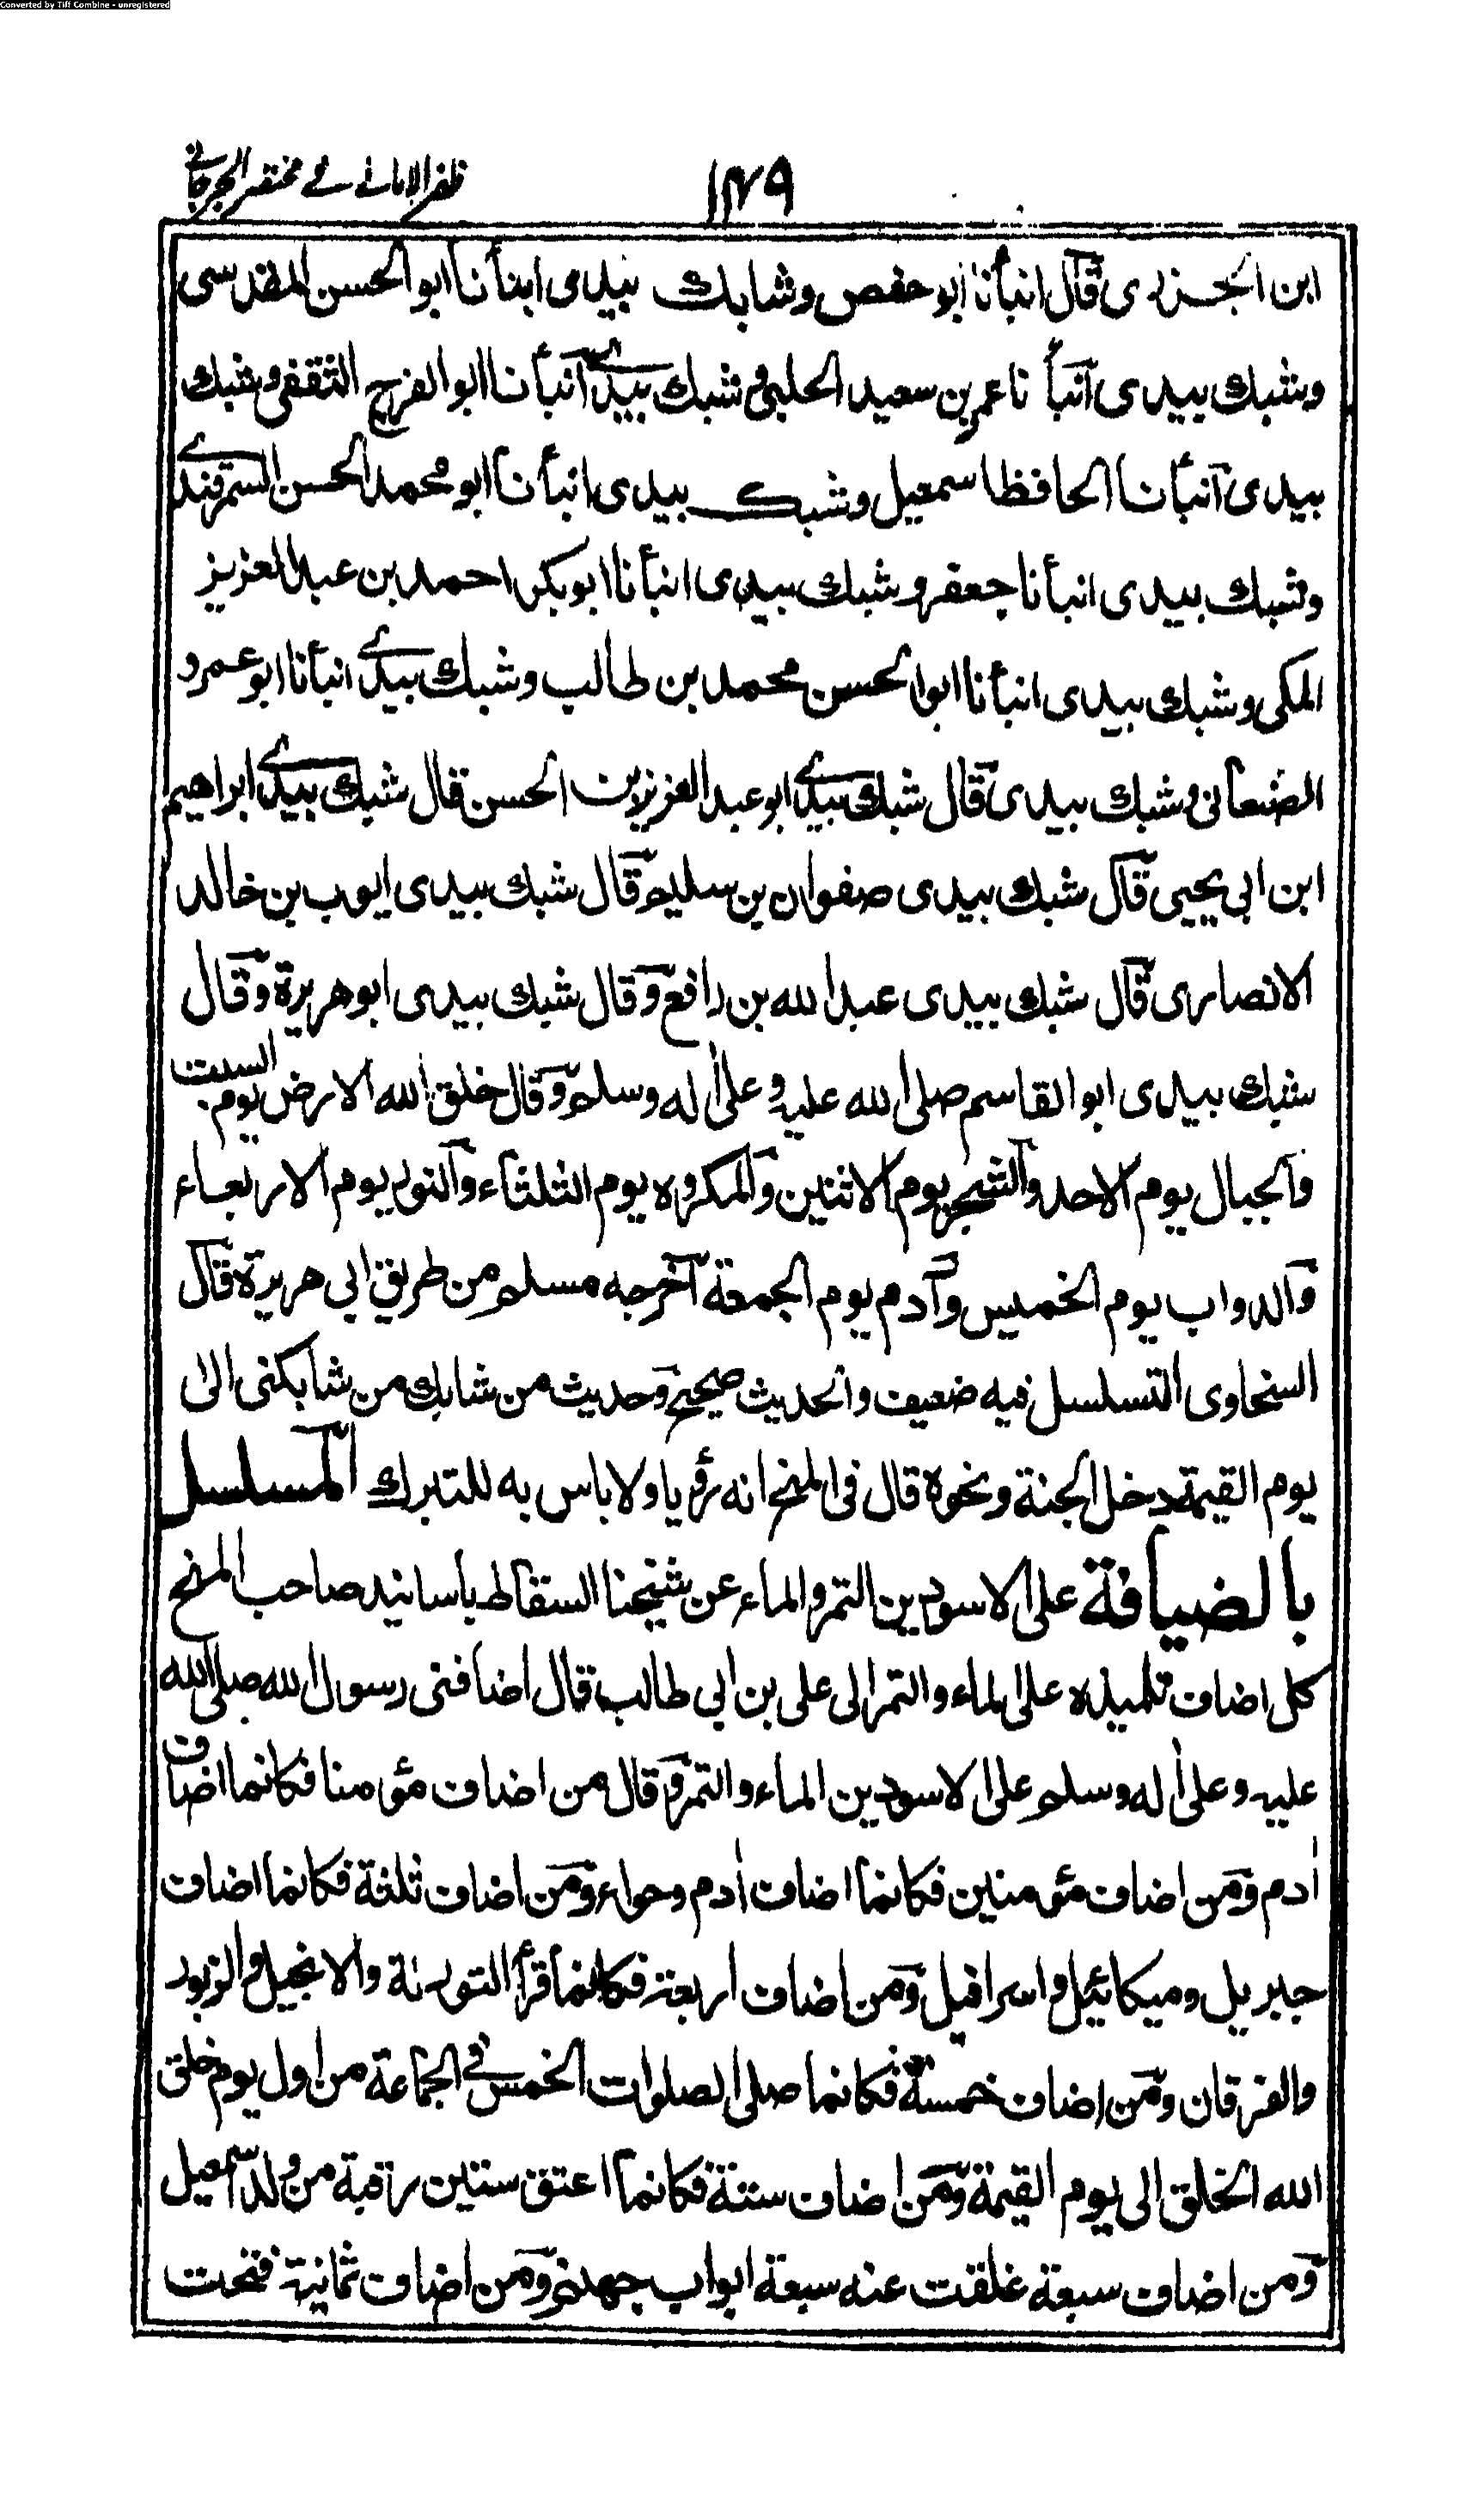 Converted by Tiff Combine - unregistered
ظفر الامانے فے مختصر الجرجانے
١٧٩
ابن الجزری قال انبأنا ابو حفص وشابك بیدی ابنأنا ابو الحسن المقدسی
وشبك بیدی انبأنا عمر بن سعید الحلبی وشبك بیدے انبأنا ابو الفرج الثقفی وشبك
بیدی انبأنا الحافظ اسمعیل وشبك بیدی انبأنا ابو محمد الحسن السمرقندے
وشبك بیدی انبأنا جعفر وشبك بیدی انبأنا ابو بکر احمد بن عبد العزیز
المکی وشبك بیدی انبأنا ابو الحسن محمد بن طالب وشبك بیدے انبأنا ابو عمرو
الضعانی وشبك بیدی قال شبك بیدے ابو عبد العزیز بن الحسن قال شبك بیدے ابراهیم
ابن ابی یحیی قال شبك بیدی صفوان بن سلیم قال شبك بیدی ایوب بن خالد
الانصاری قال شبك بیدی عبد الله بن رافع وقال شبك بیدی ابو هریرة وقال
شبك بیدی ابو القاسم صلی الله علیه وعلی اٰله وسلم وقال خلق الله الارض یوم السبت
والجبال یوم الاحد والشجر یوم الاثنین والمکروه یوم الثلثاء والنور یوم الاربعاء
والدواب یوم الخمیس وآدم یوم الجمعة اخرجه مسلم من طریق ابی هریرة قال
السخاوی التسلسل فیه ضعیف والحدیث صحیح وحدیث من شابك من شابکنی الی
یوم القیمة دخل الجنة ونحوه قال فی المنح انه رؤیا ولا باس به للتبرك المسلسل
بالضیافة علی الاسودین التمر والماء عن شیخنا السقاط باسانید صاحب المنح
کل اضاف تلمیذه علی الماء والتمر الی علی بن ابی طالب قال اضافنی رسول الله صلی الله
علیه وعلی اٰله وسلم علی الاسودین الماء والتمر وقال من اضاف مؤمنا فکانما اضاف
اٰدم ومن اضاف مؤمنین فکانما اضاف اٰدم وحواء ومن اضاف ثلثة فکانما اضاف
جبریل ومیکائیل واسرافیل ومن اضاف اربعة فکانما قرأ التورٰىة والانجیل والزبور
والفرقان ومن اضاف خمسة فکانما صلی الصلوات الخمس فی الجماعة من اول یوم خلق
الله الخلق الی یوم القیمة ومن اضاف ستة فکانما اعتق ستین رقبة من ولد اسمعیل
ومن اضاف سبعة غلقت عنه سبعة ابواب جهنم ومن اضاف ثمانیة فتحت